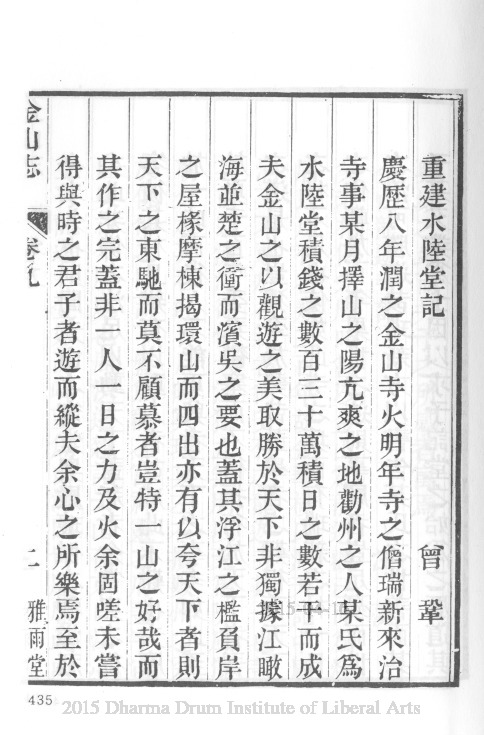 重建水陸堂記 曾鞏
慶歷八年潤之金山寺火明年寺之僧瑞新來治
寺事某月擇山之陽亢爽之地勸州之人某氏爲
水陸堂積錢之數百三十萬積日之數若干而成
夫金山之以觀遊之美取勝於天下非獨據江瞰
海並楚之衝而濱吳之要也蓋其浮江之檻負岸
之屋椽摩棟揭環山而四出亦有以夸天下者則
天下之東馳而莫不顧慕者豈特一山之好哉而
其作之完蓋非一人一日之力及火余固嗟未嘗
得與時之君子者遊而縱夫余心之所樂焉至於
金山志 卷九 二 雅雨堂
435
2015 Dharma Drum Institute of Liberal Arts